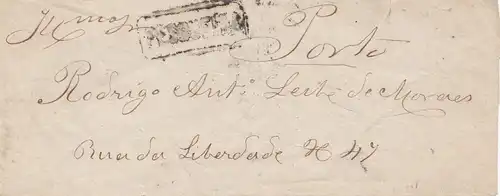 Illmos
Porto
Rodrigo Anto. Leite de Moraes
Rua da Liberdade N 47